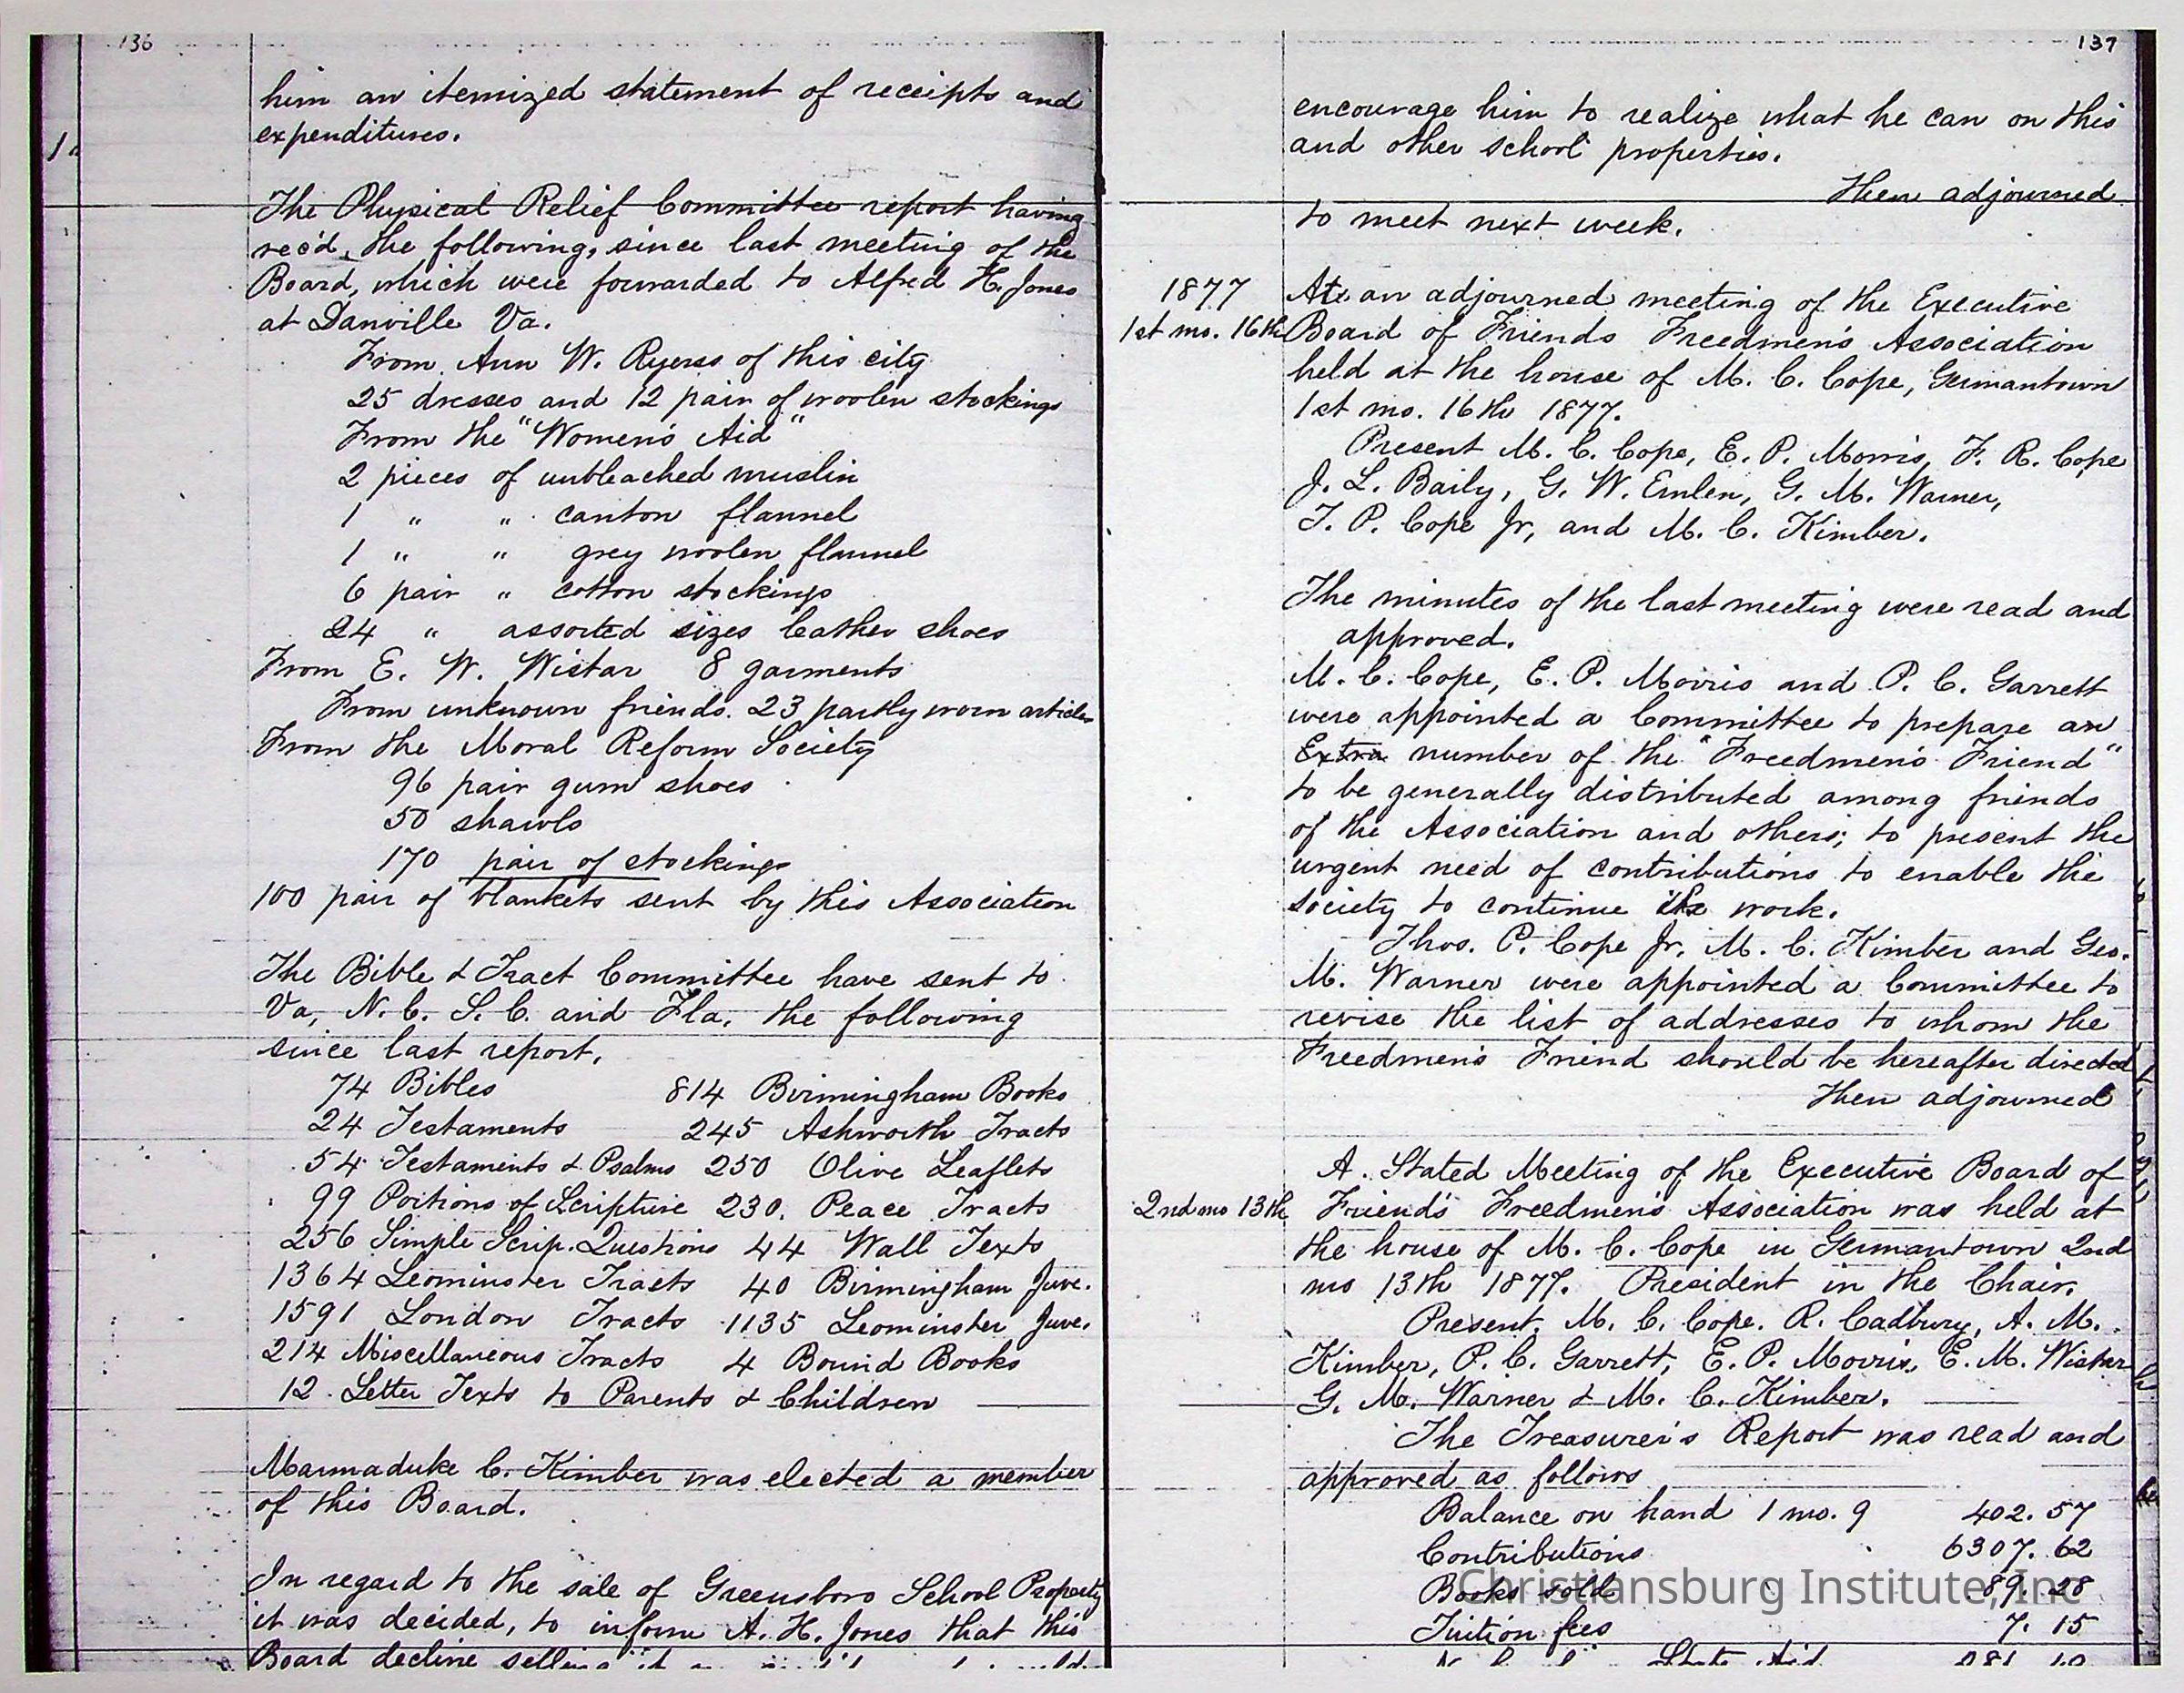 136
him an itemized statement of receipts and
expenditures.
The Physical Relief Committee report having
rec'd, the following, since last meeting of the
Board, which were forwarded to Alfred H. Jones
at Danville Va.
From Ann W. Ryerss of this city
25 dresses and 12 pair of woolen stockings
From the "Women's Aid"
2 pieces of unbleached muslin
1 " " canton flannel
1 " " grey woolen flannel
6 pair " cotton stockings
24 " assorted sizes leather shoes
From E. W. Wistar 8 garments
From unknown friends. 23 partly worn articles
From the Moral Reform Society
96 pair gum shoes
50 shawls
170 pair of stockings
100 pair of blankets sent by this Association
The Bible & Tract Committee have sent to
Va, N. C. S. C. and Fla. the following
since last report.
74 Bibles 814 Birmingham Books
24 Testaments 245 Ashworth Tracts
54 Testaments & Psalms 250 Olive Leaflets
99 Portions of Scripture 230. Peace Tracts
256 Simple Scrip. Questions 44 Wall Texts
1364 Leominster Tracts 40 Birmingham Juve.
1591 London Tracts 1135 Leominster Juve.
214 Miscellaneous Tracts 4 Bound Books
12. Letter Texts to Parents & Children
Marmaduke C. Kimber was elected a member
of this Board.
In regard to the sale of Greensboro School Property
it was decided, to inform A. H. Jones that this
Board decline selling it
137
encourage him to realize what he can on this
and other school properties.
Then adjourned
to meet next week.
1877 At an adjourned meeting of the Executive
1st mo. 16th Board of Friends Freedmen's Association
held at the house of M. C. Cope, Germantown
1st mo. 16th 1877.
Present M. C. Cope, E. P. Morris, F. R. Cope
J. L. Baily, G. W. Emlen, G. M. Warner,
T. P. Cope Jr, and M. C. Kimber.
The minutes of the last meeting were read and
approved.
M. C. Cope, E. P. Morris and P. C. Garrett
were appointed a Committee to prepare an
Extra number of the "Freedmen's Friend"
to be generally distributed among friends
of the Association and others; to present the
urgent need of contributions to enable the
society to continue its work.
Thos. P. Cope Jr, M. C. Kimber and Geo.
M. Warner were appointed a Committee to
revise the list of addresses to whom the
Freedmen's Friend should be hereafter directed
Then adjourned
A Stated Meeting of the Executive Board of
2nd mo 13th Friends' Freedmen's Association was held at
the house of M. C. Cope in Germantown 2nd
mo 13th 1877. President in the Chair.
Present. M. C. Cope. R. Cadbury, A. M.
Kimber, P. C. Garrett, E. P. Morris, E. M. Wistar
G. M. Warner & M. C. Kimber.
The Treasurer's Report was read and
approved as follows
Balance on hand 1 mo. 9 402. 57
Contributions 6307. 62
Books sold 89. 28
Tuition fees 7. 15
State Aid
Christiansburg Institute, Inc